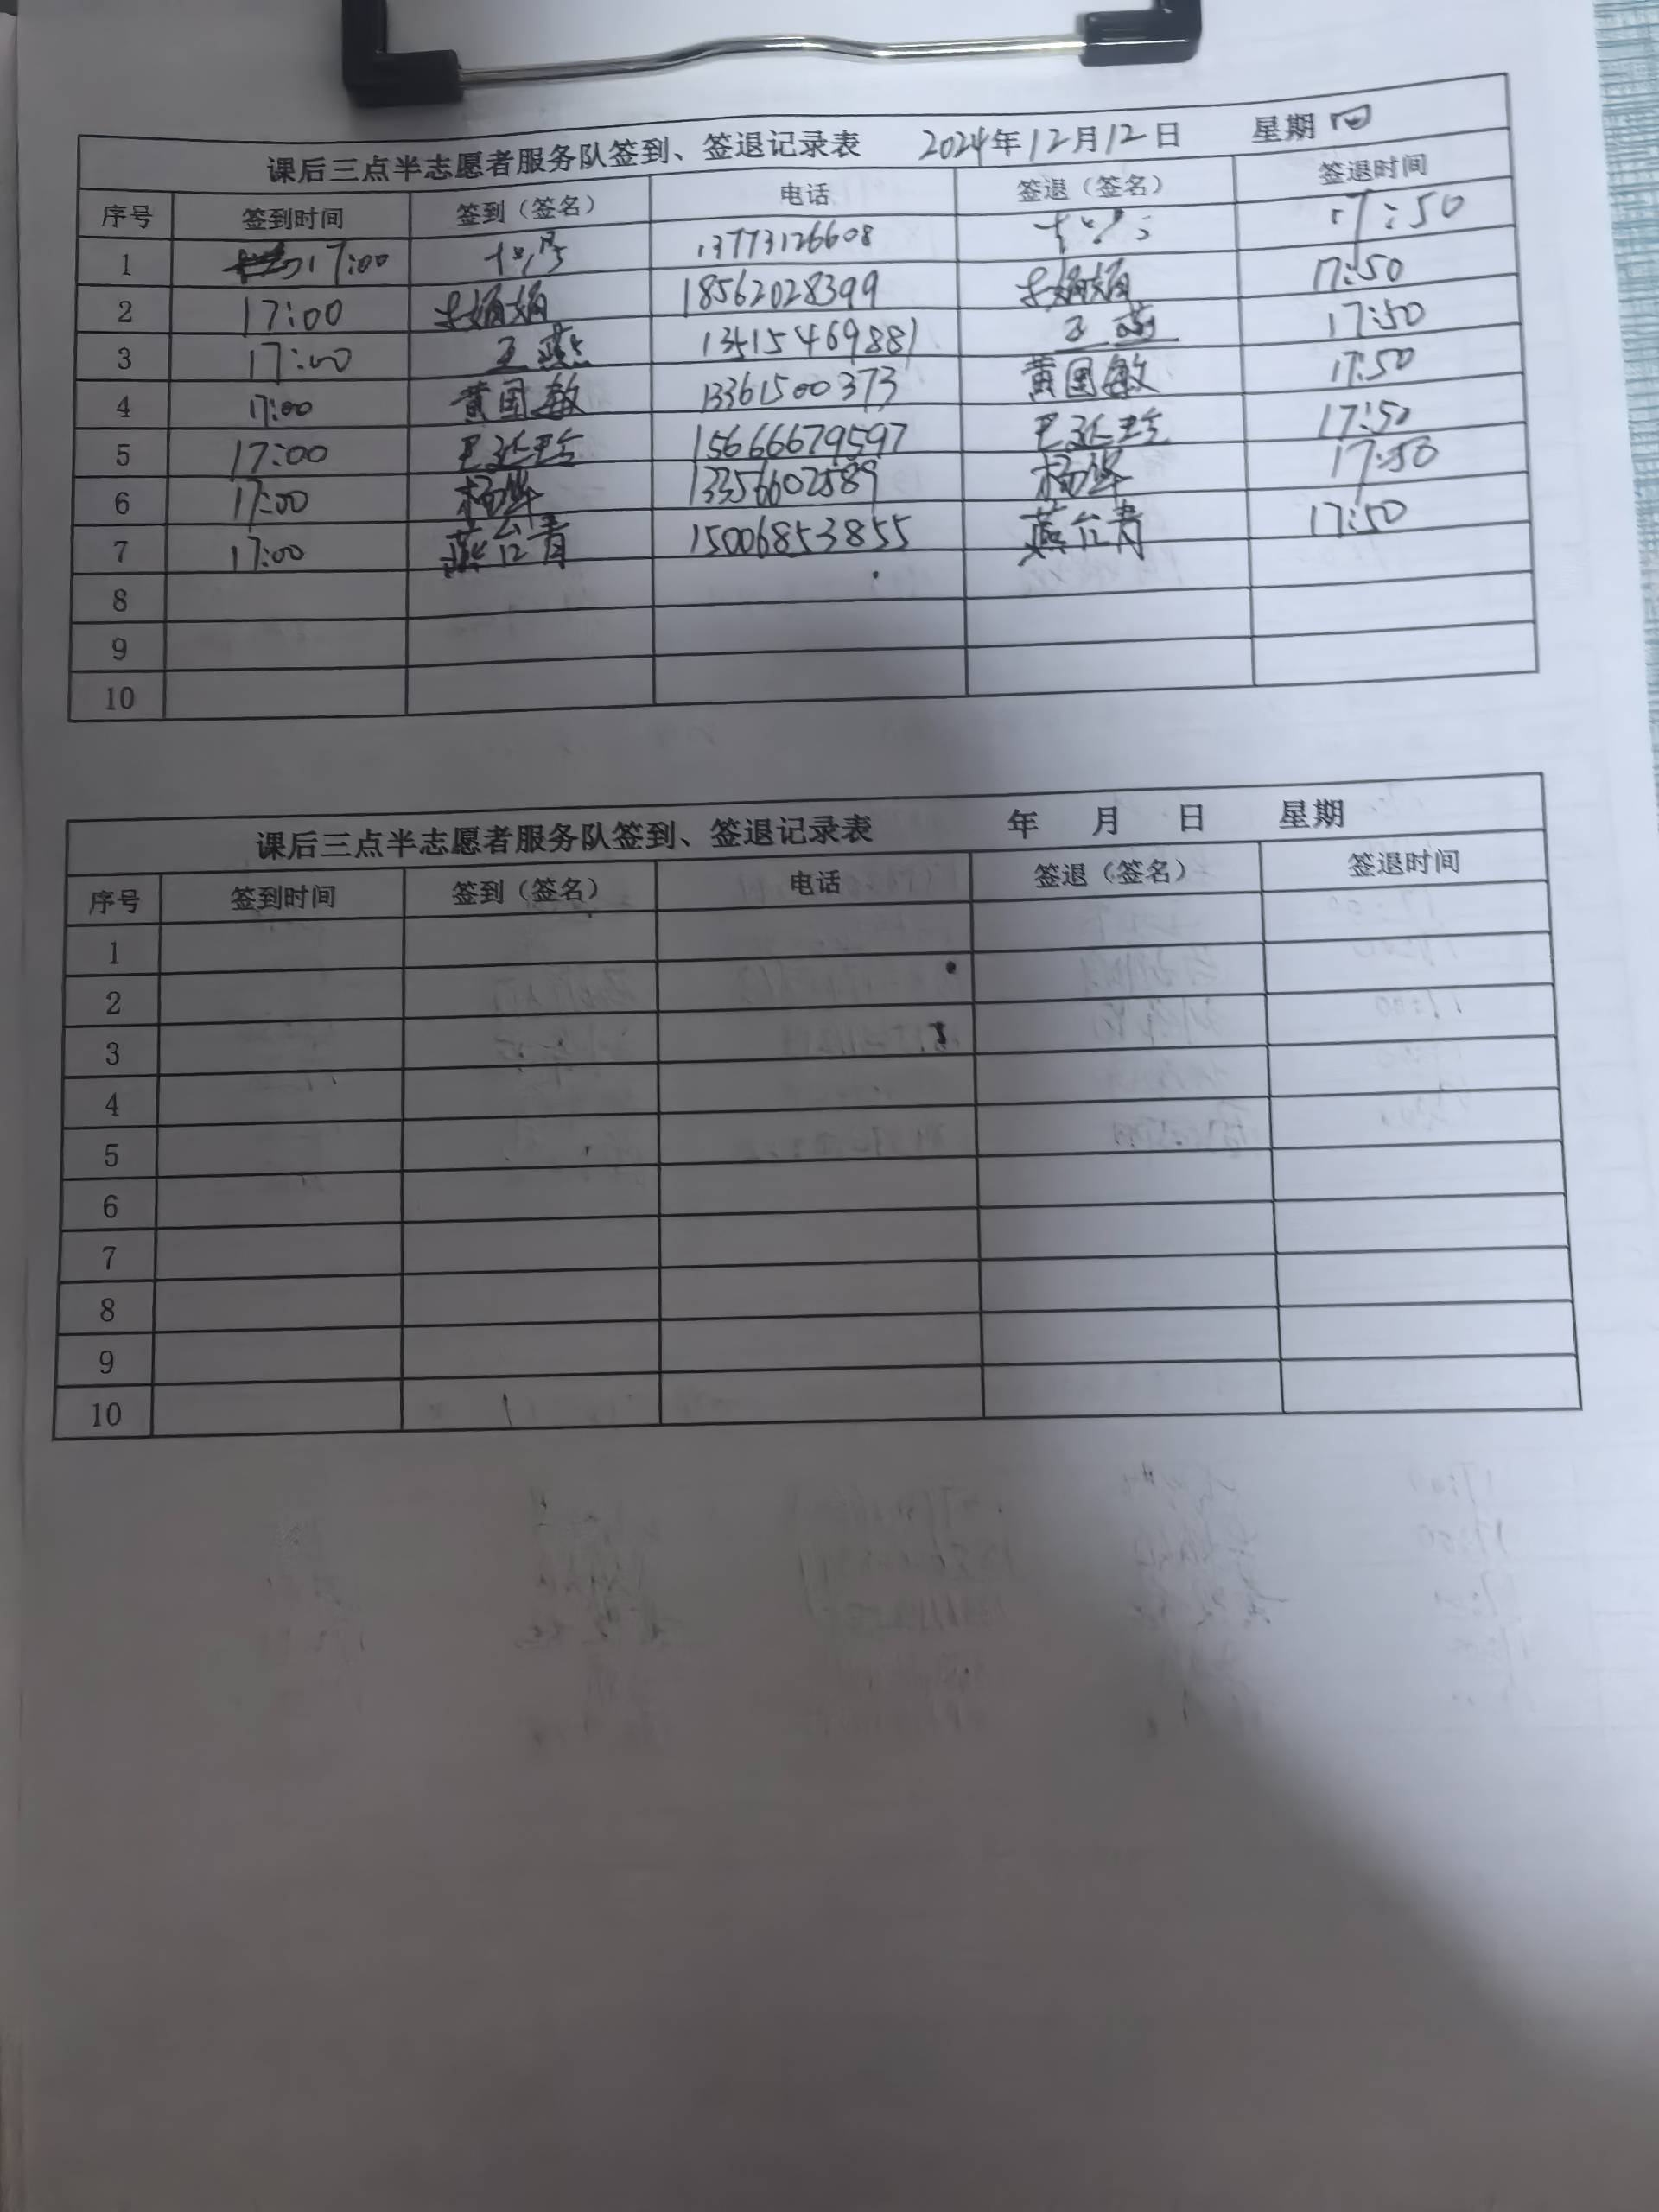 课后三点半志愿者服务队签到、签退记录表 2024年12月12日 星期四
序号 签到时间 签到（签名） 电话 签退（签名） 签退时间
1 17:00 13773126608 17:50
2 17:00 18562028399 17:50
3 17:00 王燕 王燕 17:50
4 17:00 黄国敏 13361500373 黄国敏 17:50
5 17:00 15666679597 17:50
6 17:00 杨华 13356602589 杨华 17:50
7 17:00 燕台青 15006853855 燕台青 17:50
8
9
10
课后三点半志愿者服务队签到、签退记录表 年 月 日 星期
序号 签到时间 签到（签名） 电话 签退（签名） 签退时间
1
2
3
4
5
6
7
8
9
10